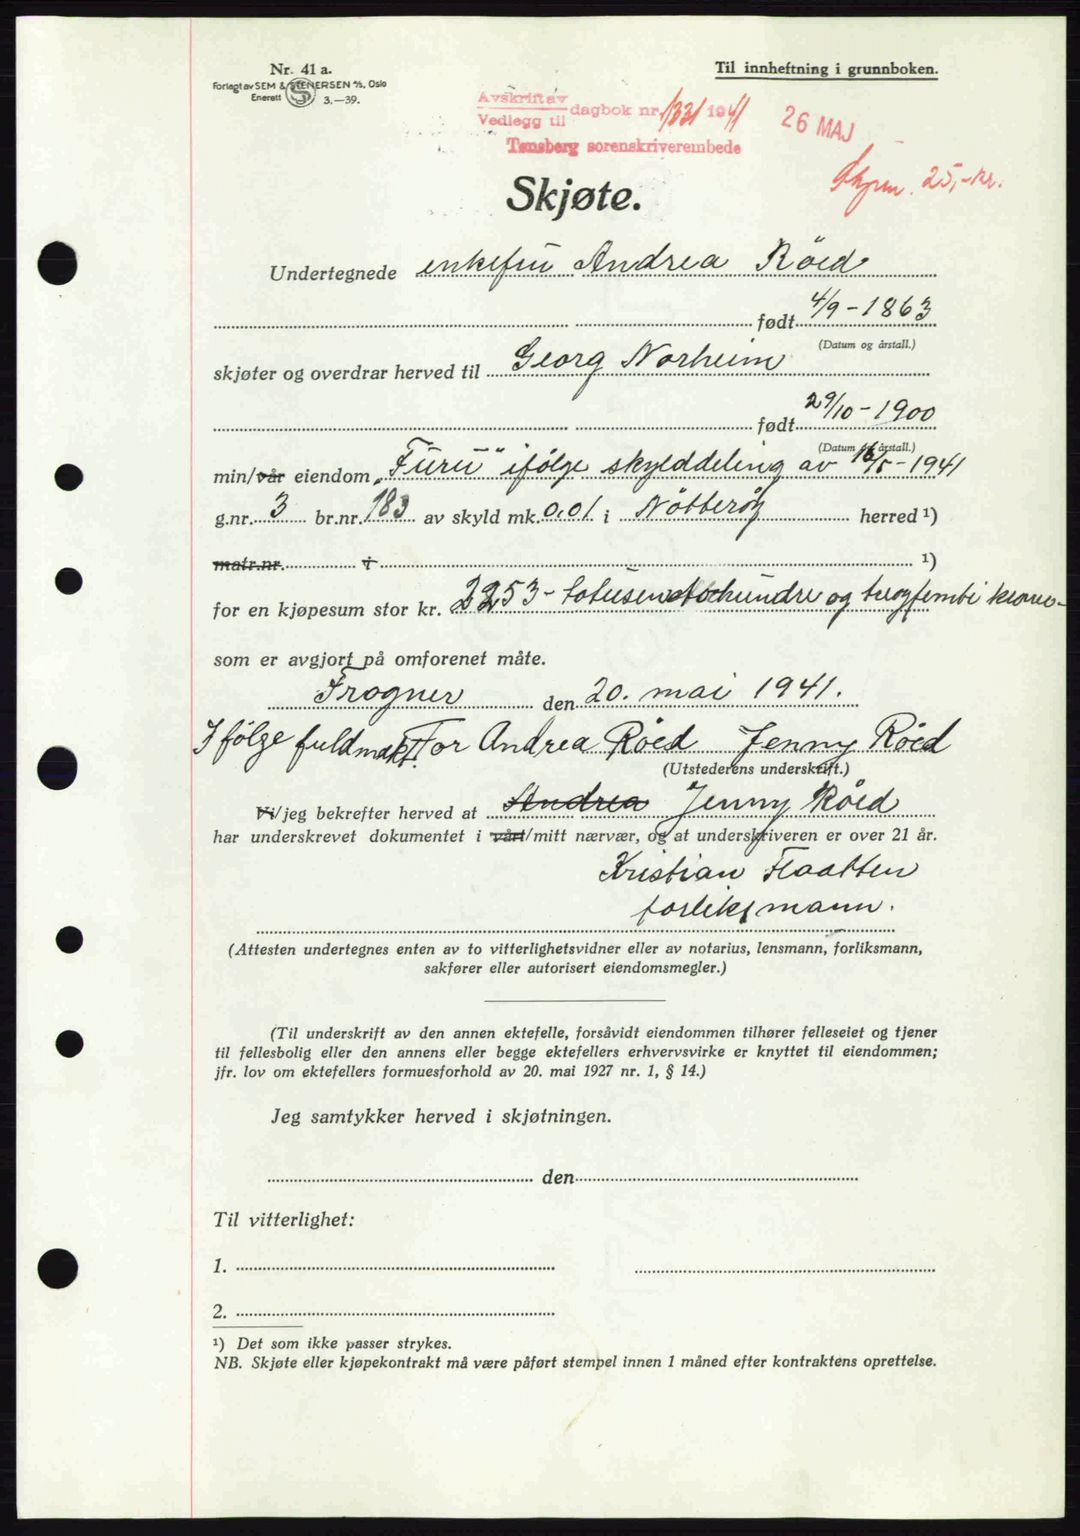 Nr. 41 a.
Forlagt av SEM & STENERSEN A/S, Oslo
Enerett S 3.—39.
Til innheftning i grunnboken.
Avskrift av
Vedlegg til dagbok nr. 1331 1941
26 MAJ
Tønsberg sorenskriverembede
25,- kr.
Skjøte.
Undertegnede enkefru Andrea Röed
født 4/9 - 1863
(Datum og årstall.)
skjøter og overdrar herved til Georg Norheim
født 29/10 - 1900
(Datum og årstall.)
min/vår eiendom „Furu" ifölge skylddeling av 16/5 - 1941
g.nr. 3 br.nr. 183 av skyld mk. 0,01 i Nötteröy herred ¹)
matr.nr. i ¹)
for en kjøpesum stor kr. 2253 - totusentohundre og treogfemti kroner-
som er avgjort på omforenet måte.
Frogner den 20. mai 1941.
Ifölge fuldmakt. For Andrea Röed Jenny Röed
(Utstederens underskrift.)
Vi/jeg bekrefter herved at Andrea Jenny Röed
har underskrevet dokumentet i vårt/mitt nærvær, og at underskriveren er over 21 år.
Kristian Flaatten
forliksmann.
(Attesten undertegnes enten av to vitterlighetsvidner eller av notarius, lensmann, forliksmann,
sakfører eller autorisert eiendomsmegler.)
(Til underskrift av den annen ektefelle, forsåvidt eiendommen tilhører felleseiet og tjener
til fellesbolig eller den annens eller begge ektefellers erhvervsvirke er knyttet til eiendommen;
jfr. lov om ektefellers formuesforhold av 20. mai 1927 nr. 1, § 14.)
Jeg samtykker herved i skjøtningen.
den
Til vitterlighet:
1.
2.
¹) Det som ikke passer strykes.
NB. Skjøte eller kjøpekontrakt må være påført stempel innen 1 måned efter kontraktens oprettelse.